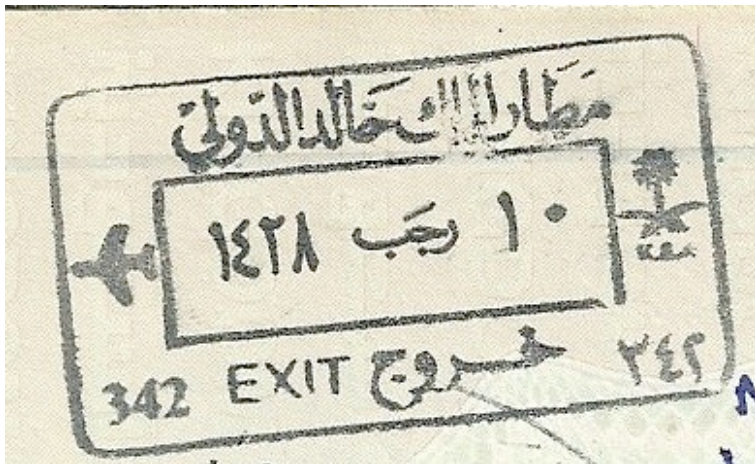 مطار الملك خالد الدولي
١٠ رجب ١٤٢٨
KSA
342 EXIT خروج ٣٤٢